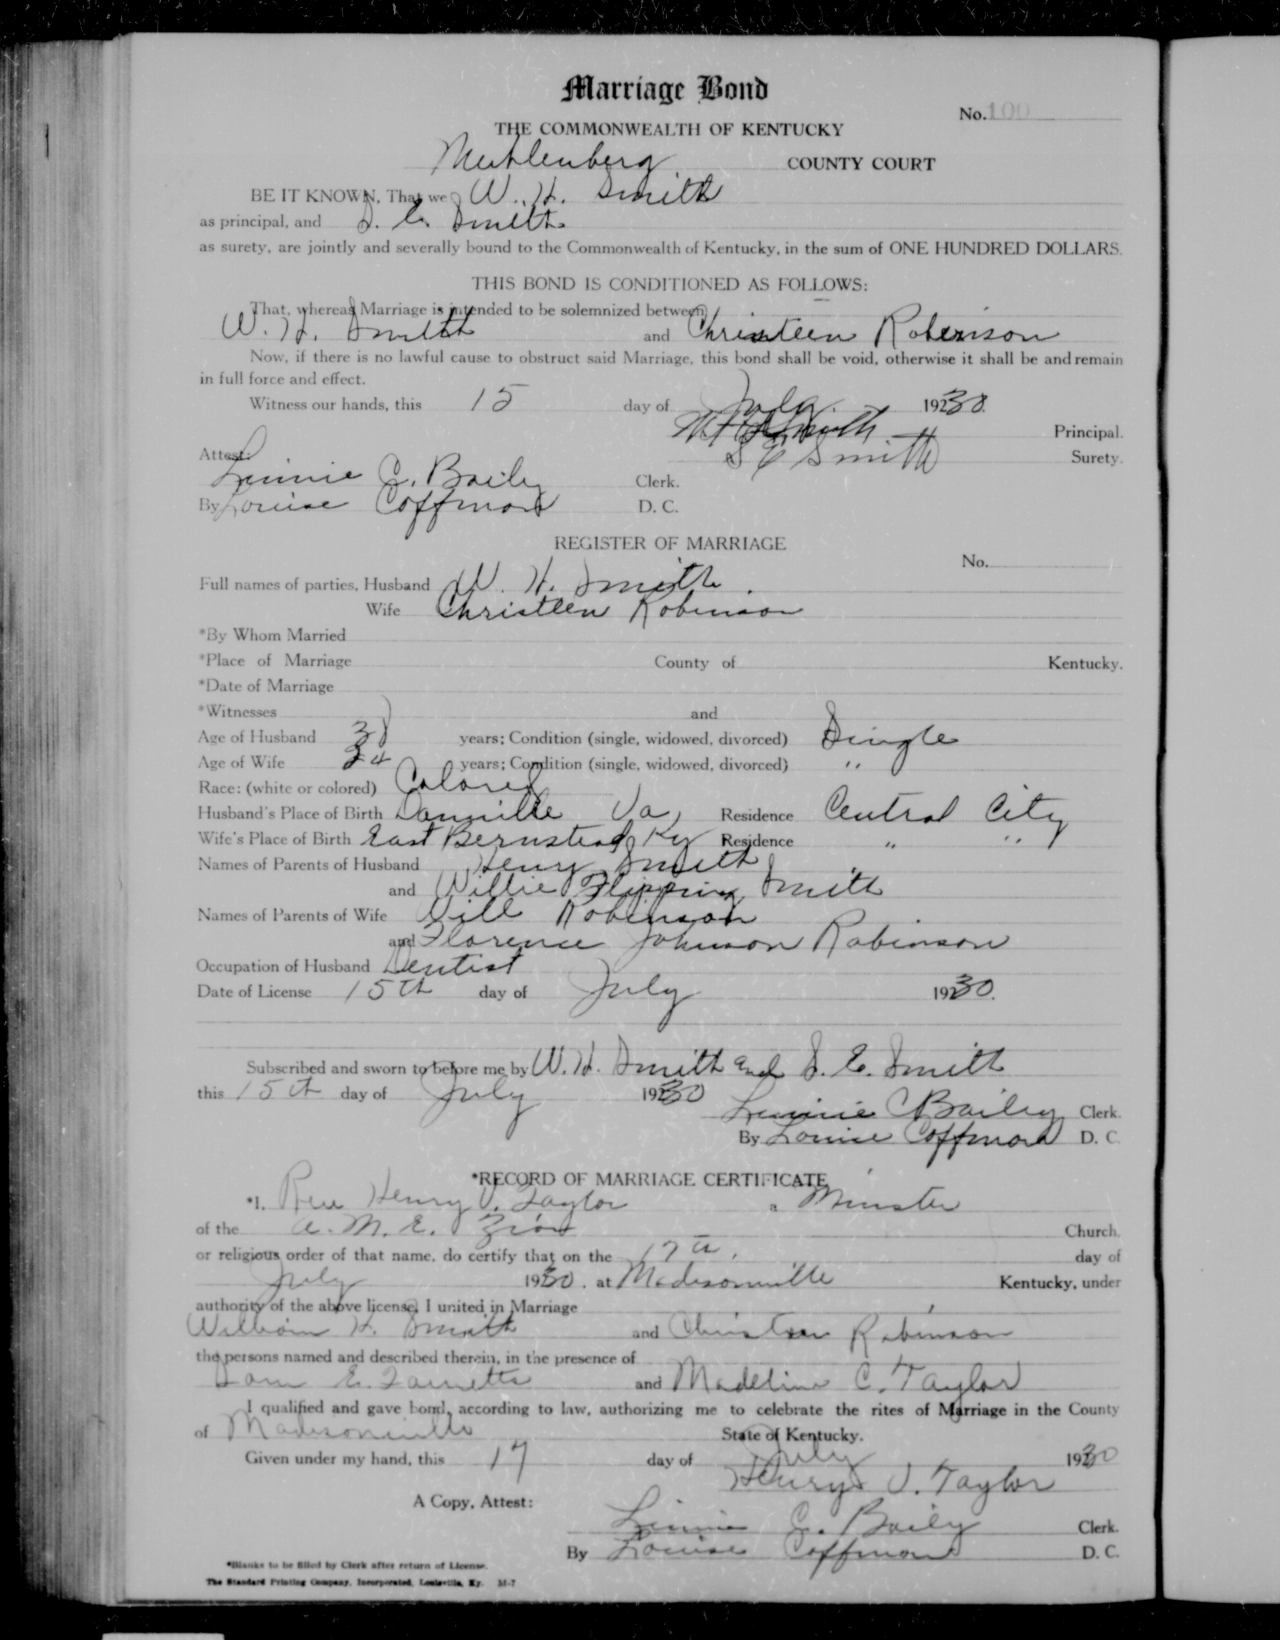 Marriage Bond
No. 100
THE COMMONWEALTH OF KENTUCKY
Muhlenberg COUNTY COURT
BE IT KNOWN, That we W. H. Smith
as principal, and S. E. Smith
as surety, are jointly and severally bound to the Commonwealth of Kentucky, in the sum of ONE HUNDRED DOLLARS.
THIS BOND IS CONDITIONED AS FOLLOWS:
That, whereas Marriage is intended to be solemnized between
W. H. Smith and Christeen Robinson
Now, if there is no lawful cause to obstruct said Marriage, this bond shall be void, otherwise it shall be and remain
in full force and effect.
Witness our hands, this 15 day of July 1930.
W H Smith Principal.
Attest: S E Smith Surety.
Linnie C. Baily Clerk.
By Louise Coffman D. C.
REGISTER OF MARRIAGE
No.
Full names of parties, Husband W. H. Smith.
Wife Christeen Robinson
*By Whom Married
*Place of Marriage County of Kentucky.
*Date of Marriage
*Witnesses and
Age of Husband 38 years; Condition (single, widowed, divorced) Single
Age of Wife 24 years; Condition (single, widowed, divorced) "
Race: (white or colored) Colored
Husband's Place of Birth Danville Va, Residence Central City
Wife's Place of Birth East Bernstead Ky Residence " "
Names of Parents of Husband Henry Smith
and Willie Flipping Smith
Names of Parents of Wife Will Robinson
and Florence Johnson Robinson
Occupation of Husband Dentist
Date of License 15th day of July 1930.
Subscribed and sworn to before me by W. H. Smith and S. E. Smith
this 15th day of July 1930
Linnie C Bailey Clerk.
By Louise Coffman D. C.
*RECORD OF MARRIAGE CERTIFICATE
*I, Rev Henry V. Taylor a Minster
of the A. M. E. Zion Church,
or religious order of that name, do certify that on the 17th, day of
July 1930, at Madisonville Kentucky, under
authority of the above license, I united in Marriage
William H. Smith and Christeen Robinson
the persons named and described therein, in the presence of
E. and Madeline C. Taylor
I qualified and gave bond, according to law, authorizing me to celebrate the rites of Marriage in the County
of Madisonville State of Kentucky.
Given under my hand, this 17 day of July 1930
Henry V. Taylor
A Copy, Attest:
Linnie C. Baily Clerk.
By Louise Coffman D. C.
*Blanks to be filled by Clerk after return of License.
The Standard Printing Company, Incorporated, Louisville, Ky. M-7